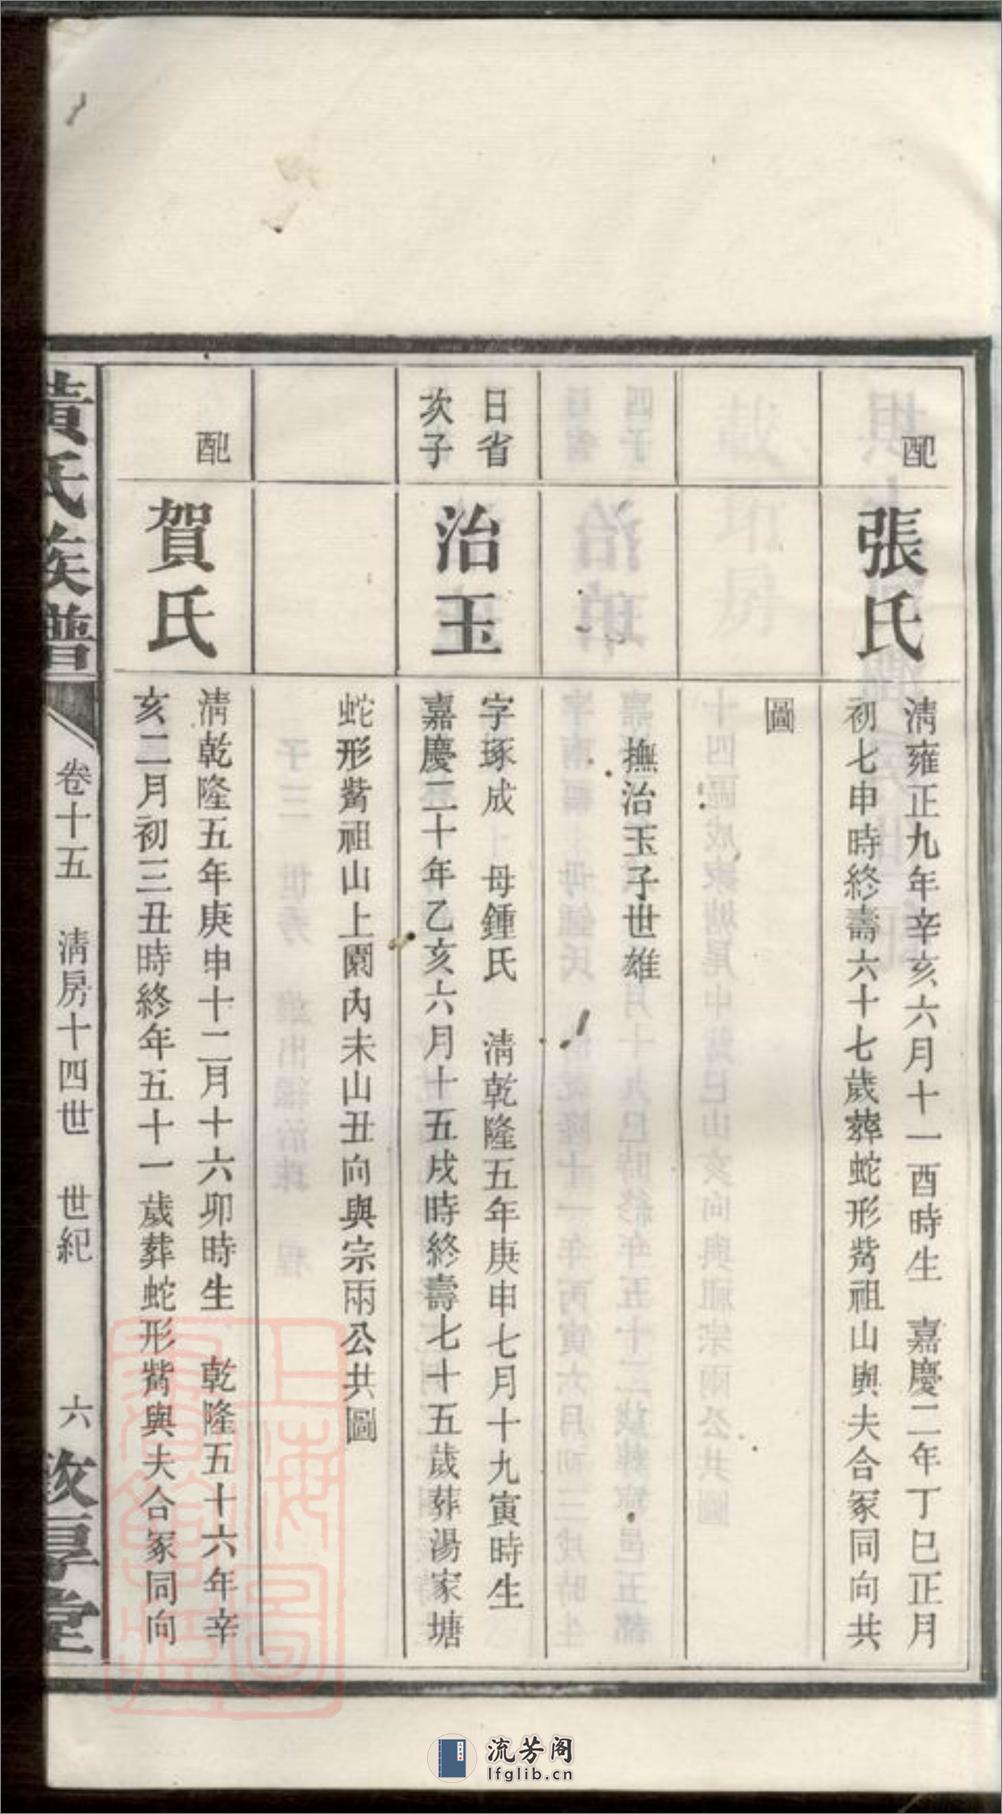 配
張氏
清雍正九年辛亥六月十一酉時生　嘉慶二年丁巳正月
初七申時終壽六十七歲葬蛇形觜祖山與夫合冢同向共
圖
撫治玉子世雄
日省
次子
治玉
字琢成　母鍾氏　清乾隆五年庚申七月十九寅時生
嘉慶二十年乙亥六月十五戌時終壽七十五歲葬湯家塘
蛇形觜祖山上園內未山丑向與宗兩公共圖
配
賀氏
清乾隆五年庚申十二月十六卯時生　乾隆五十六年辛
亥二月初三丑時終年五十一歲葬蛇形觜與夫合冢同向
黃氏族譜
卷十五　清房十四世　世紀
六
敦厚堂
上海圖書館藏
流芳阁
lfglib.cn